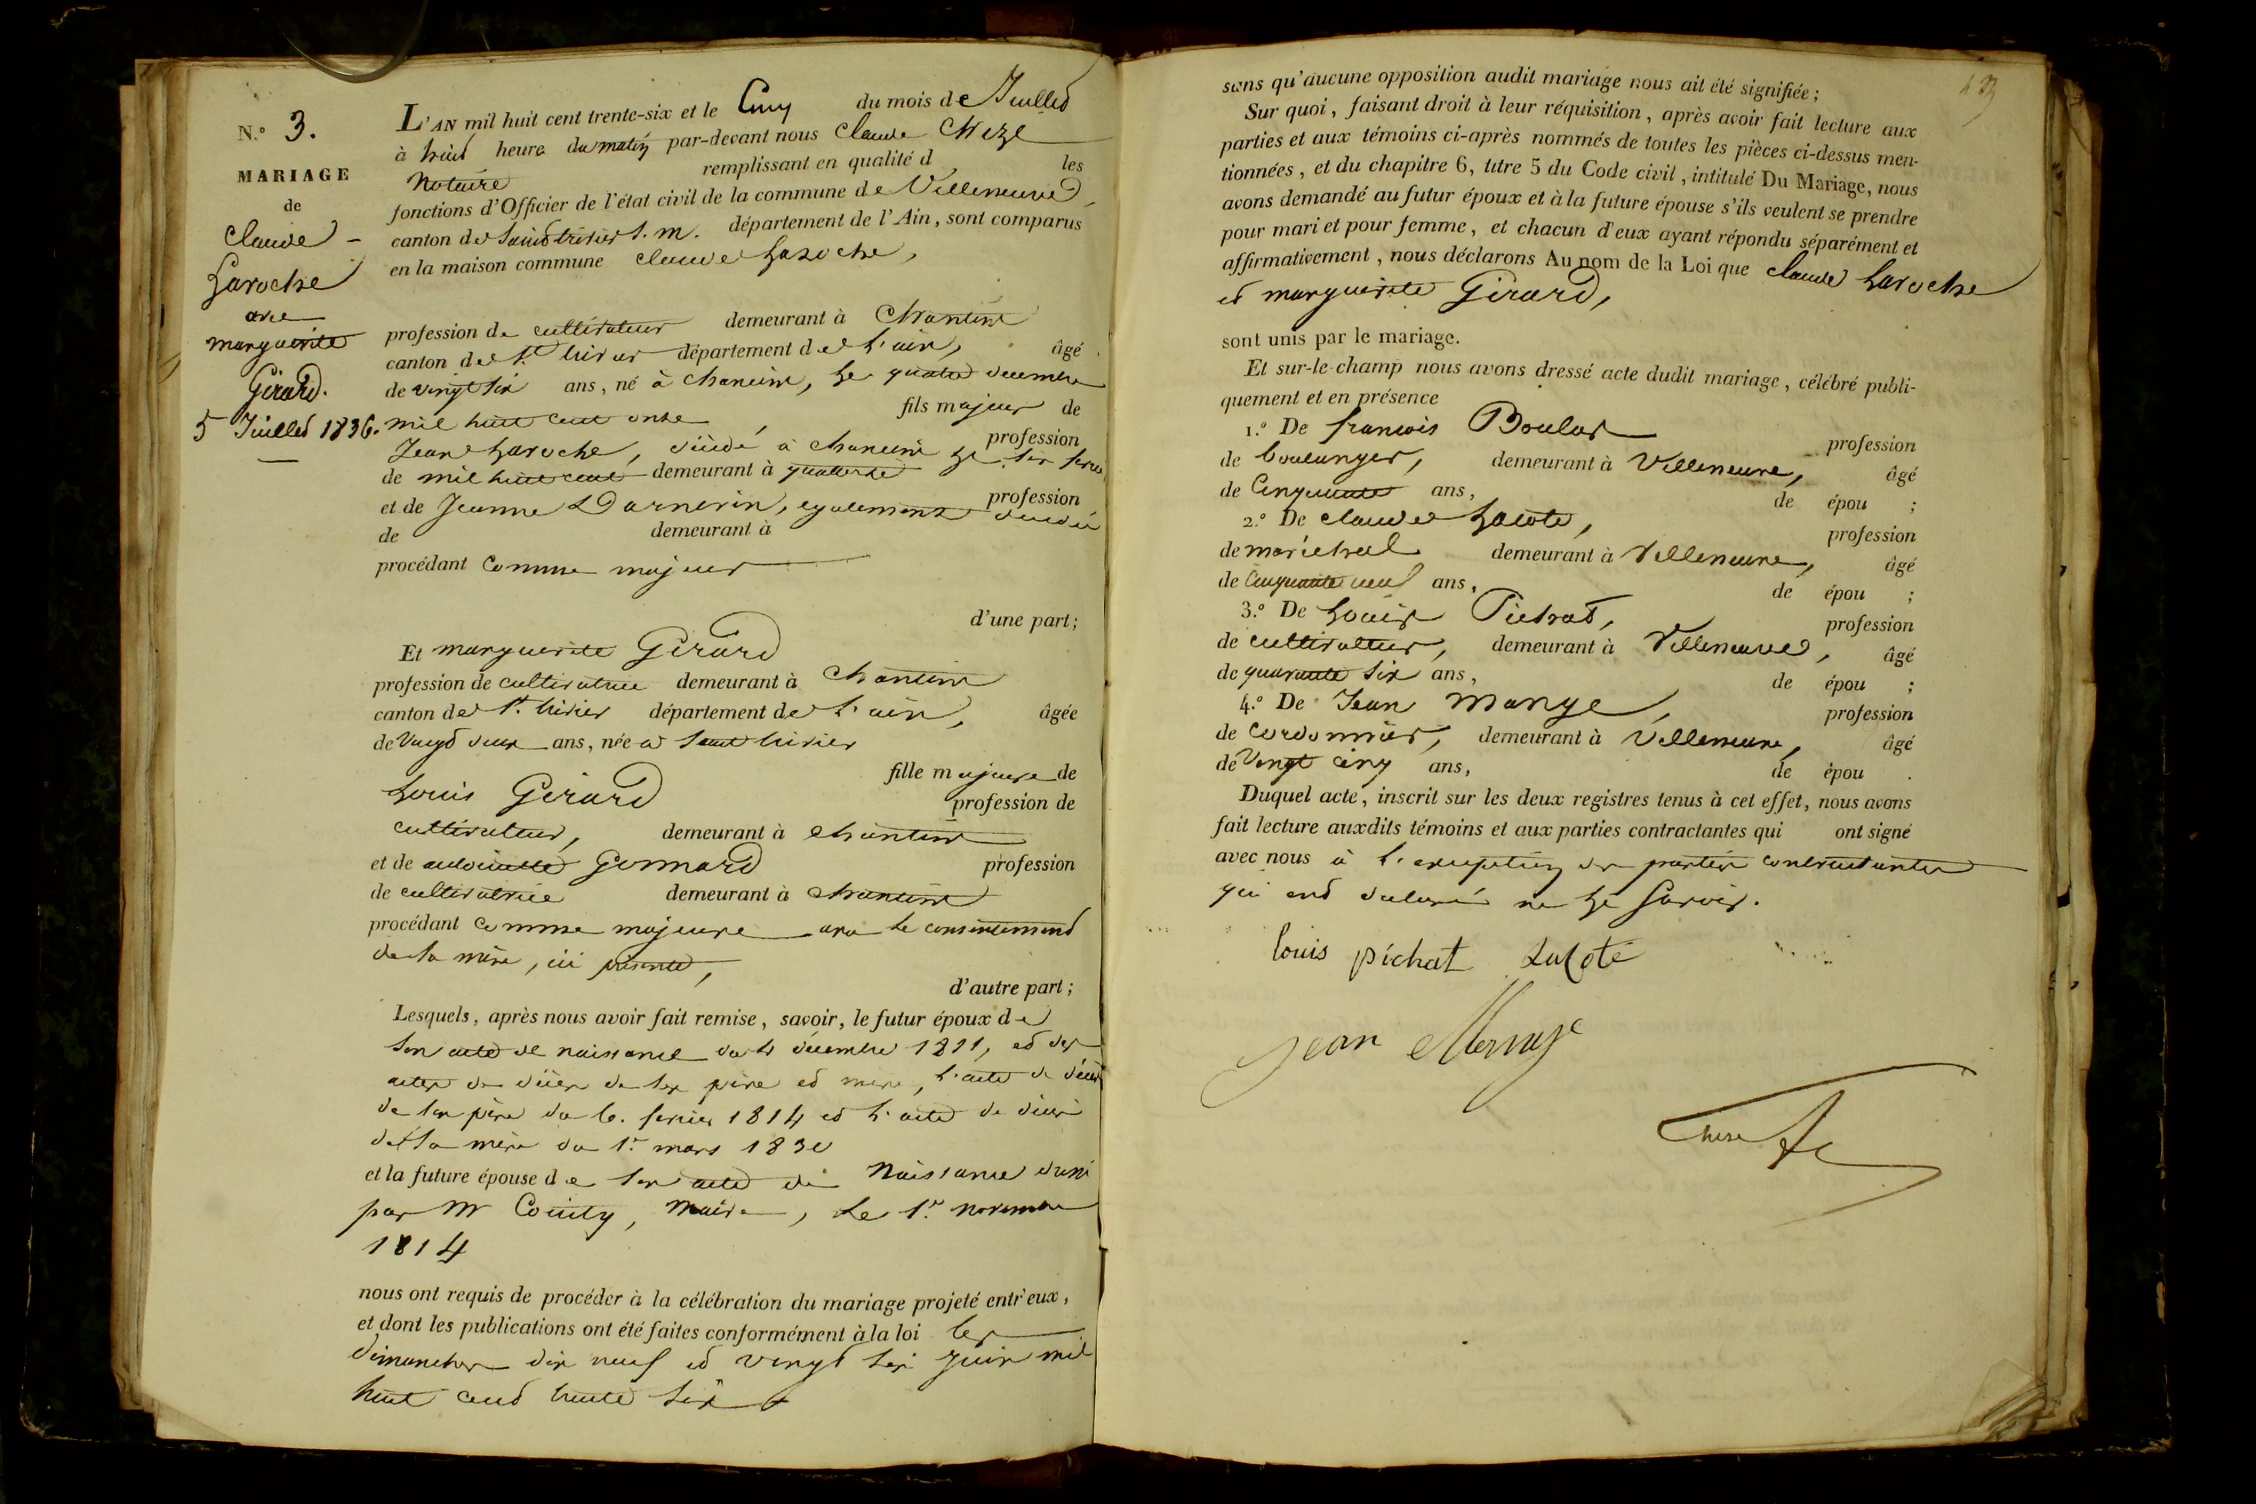 N.o 3.
MARIAGE
de
Claude
Laroche
avec
marguerite
Girard.
5 Juillet 1836.
L'AN mil huit cent trente-six et le Cinq du mois de Juillet
à huit heure du matin par-devant nous Claude Chize
Notaire remplissant en qualité d les
fonctions d'Officier de l'état civil de la commune de Villeneuve,
canton de Saint trivier s. m. département de l'Ain, sont comparus
en la maison commune Claude Laroche,
profession de cultivateur demeurant à Chanteins
canton de St. trivier département de L'ain, âgé
de vingt six ans, né à Chaneins, Le quatre decembre
mil huit cent onze, fils majeur de
Jean Laroche, décédé à Chaneins Le six fevrier profession
de mil huit cent demeurant à quatorze
et de Jeanne Darnerin, egalement décédée profession
de demeurant à
procédant comme majeur
d'une part;
Et marguerite Girard
profession de cultivatrice demeurant à Chanteins
canton de St. trivier département de L'ain, âgée
de Vingt deux ans, née à Saint trivier
fille majeure de
Louis Girard profession de
cultivateur, demeurant à Chanteins
et de antoinette Gonnard profession
de cultivatrice demeurant à Chanteins
procédant comme majeure avec le consentement
de sa mère, ici présente,
d'autre part;
Lesquels, après nous avoir fait remise, savoir, le futur époux de
son acte de naissance du 4 décembre 1811, et des
actes de décès de ses père et mère, L'acte de décès
de son père du 6. fevrier 1814 et L'acte de décès
de sa mère du 1.r mars 1830
et la future épouse de son acte de Naissance
par Mr , Maire, Le 1.r novembre
1814
nous ont requis de procéder à la célébration du mariage projeté entr'eux,
et dont les publications ont été faites conformément à la loi les
dimanches dix neuf et vingt six juin mil
huit cent trente six
sans qu'aucune opposition audit mariage nous ait été signifiée;
Sur quoi, faisant droit à leur réquisition, après avoir fait lecture aux
parties et aux témoins ci-après nommés de toutes les pièces ci-dessus men-
tionnées, et du chapitre 6, titre 5 du Code civil, intitulé Du Mariage, nous
avons demandé au futur époux et à la future épouse s'ils veulent se prendre
pour mari et pour femme, et chacun d'eux ayant répondu séparément et
affirmativement, nous déclarons Au nom de la Loi que Claude Laroche
et marguerite Girard,
sont unis par le mariage.
Et sur-le-champ nous avons dressé acte dudit mariage, célébré publi-
quement et en présence
1.o De francois Boulas profession
de boulanger, demeurant à Villeneuve, âgé
de Cinquante ans, de épou ;
2.o De Claude Lacote, profession
de maréchal demeurant à Villeneuve, âgé
de Cinquante neuf ans, de épou ;
3.o De Louis Pichat, profession
de cultivateur, demeurant à Villeneuve, âgé
de quarante six ans, de épou ;
4.o De Jean Mange, profession
de Cordonnier, demeurant à Villeneuve, âgé
de Vingt cinq ans, de épou .
Duquel acte, inscrit sur les deux registres tenus à cet effet, nous avons
fait lecture auxdits témoins et aux parties contractantes qui ont signé
avec nous à L'exception des parties contractantes
qui ont declaré ne Le savoir.
louis pichat Lacote
jean Mange
Chize